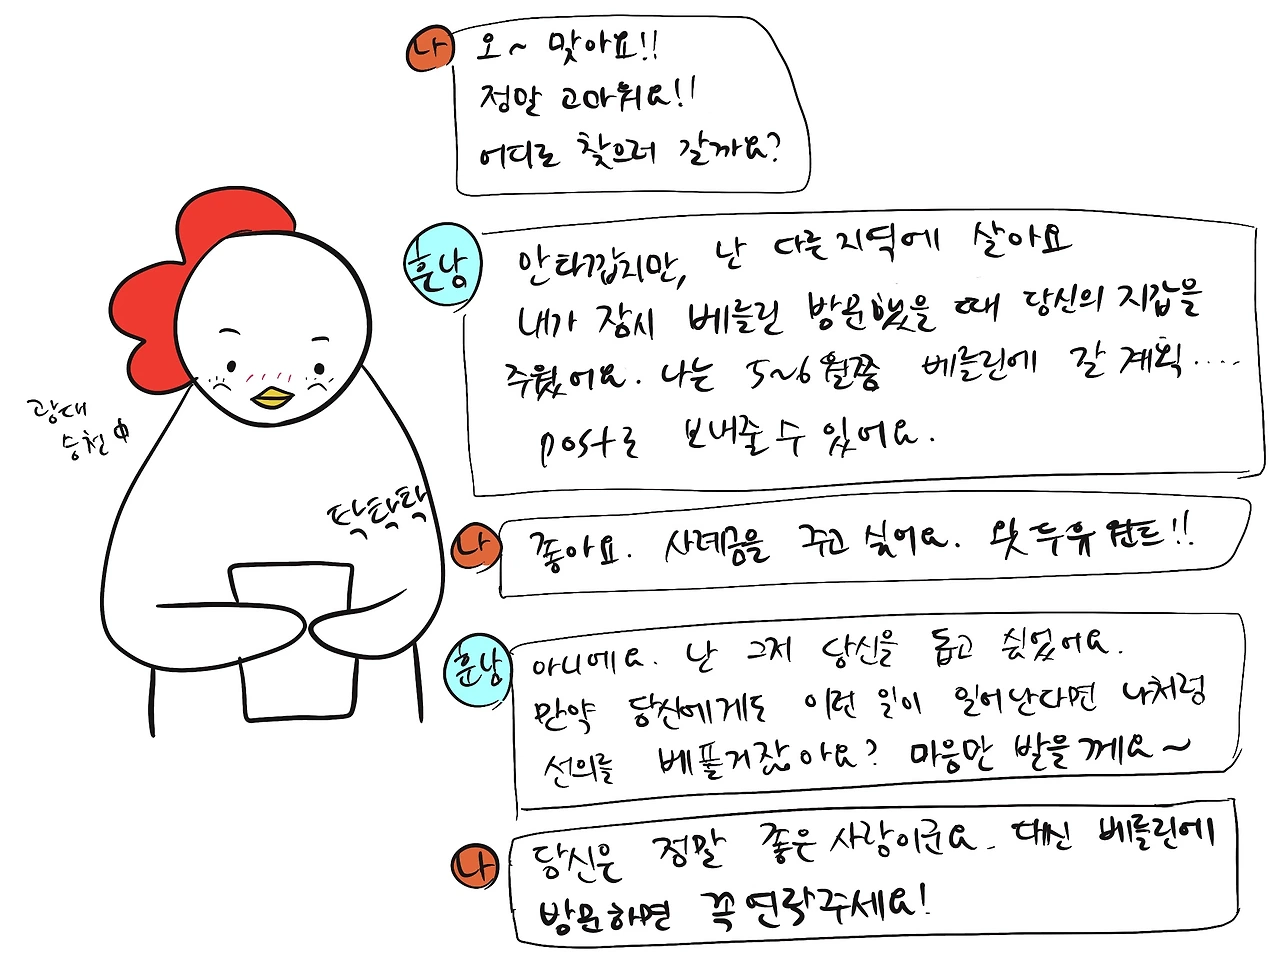 나
오~ 맞아요!!
정말 고마워요!!
어디로 찾으러 갈까요?
훈남
안타깝지만, 난 다른지역에 살아요
내가 잠시 베를린 방문했을 때 당신의 지갑을
주웠어요. 나는 5~6월쯤 베를린에 갈 계획....
post로 보내줄 수 있어요.
광대
승천
탁탁탁
나
좋아요. 사례금을 주고 싶어요. 왓 두 유 원트!!
훈남
아니에요. 난 그저 당신을 돕고 싶었어요.
만약 당신에게도 이런 일이 일어난다면 나처럼
선의를 베풀거잖아요? 마음만 받을께요~
나
당신은 정말 좋은 사람이군요. 대신 베를린에
방문하면 꼭 연락주세요!